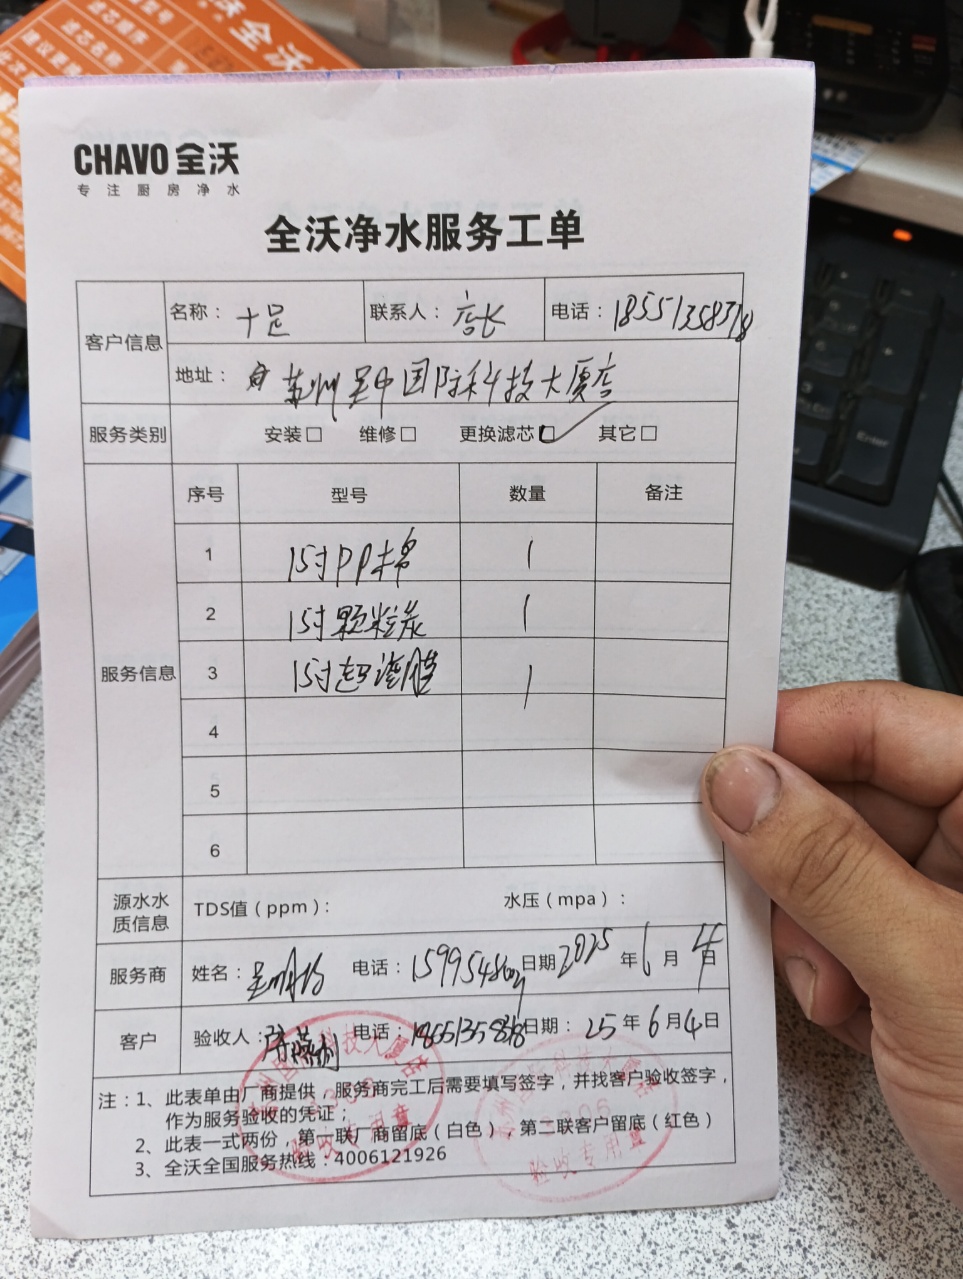 CHAVO 全沃
专注厨房净水
全沃净水服务工单
客户信息 名称： 十足 联系人： 店长 电话：18551358318
地址： 苏州吴中国际科技大厦店
服务类别 安装□ 维修□ 更换滤芯□✓ 其它□
服务信息 序号 型号 数量 备注
1 15寸PP棉 1
2 15寸颗粒炭 1
3 15寸超滤膜 1
4
5
6
源水水质信息 TDS值（ppm）： 水压（mpa）：
服务商 姓名： 电话： 日期 2025 年 6 月 4 日
客户 验收人： 电话：18551358318 日期： 25 年 6 月 4 日
注：1、此表单由厂商提供，服务商完工后需要填写签字，并找客户验收签字，
作为服务验收的凭证；
2、此表一式两份，第一联厂商留底（白色），第二联客户留底（红色）
3、全沃全国服务热线：4006121926
验收专用章
验收专用章